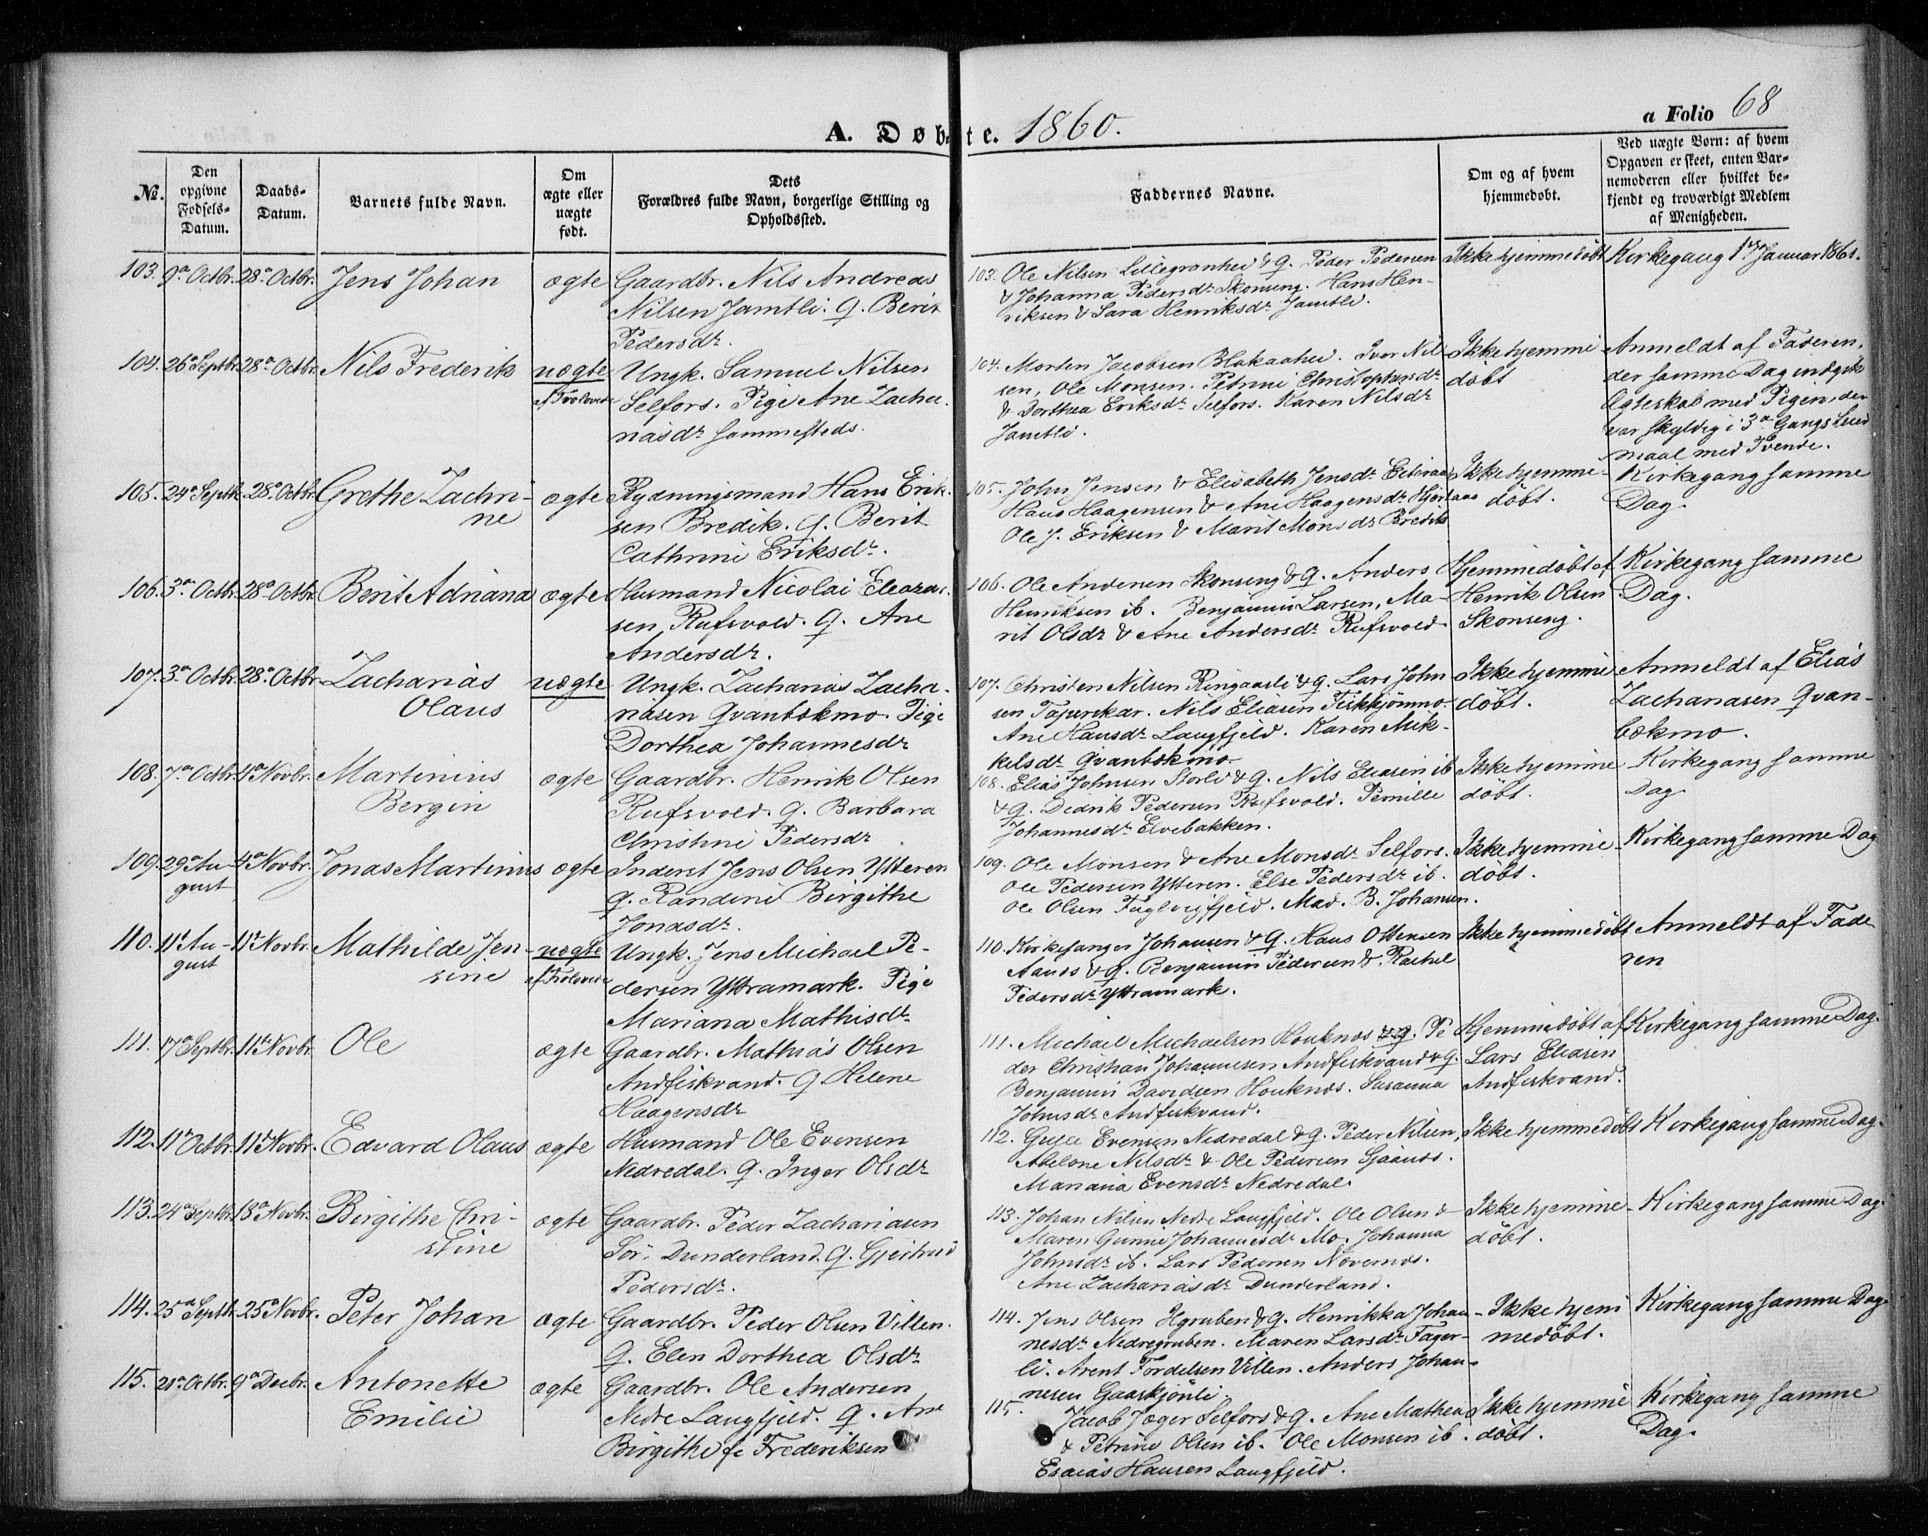 A. Døbte. 1860.
a Folio 68
No.
Den opgivne Fødsels-Datum.
Daabs-Datum.
Barnets fulde Navn.
Om ægte eller uægte født.
Dets Forældres fulde Navn, borgerlige Stilling og Opholdssted.
Faddernes Navne.
Om og af hvem hjemmedøbt.
Ved uægte Børn: af hvem Opgaven er skeet, enten Barnemoderen eller hvilket bekjendt og troværdigt Medlem af Menigheden.
103. 9de Octbr. 28de Octbr. Jens Johan ægte Gaardbr. Nils Andreas
Nilsen Jamtli. Q. Berit
Pedersdr.
103. Ole Nilsen Lillegrønhei & Q. Peder Pedersen
& Johanna Pedersdr Skonseng. Hans Hen-
riksen & Sara Henriksdr Jamtli.
Ikke hjemmedøbt
Kirkegang 1ste Januar 1861.
104. 26de Septbr. 28de Octbr. Nils Frederik uægte
af Trolovede
Ungk. Samuel Nilsen
Selfors. Pige Ane Zacha-
riasdr sammesteds.
104. Morten Jacobsen Blakaahei. Iver Nil-
sen, Ole Monsen. Petrine Christophersdr
& Dorthea Eriksdr Selfors. Karen Nilsdr
Jamtli.
Ikke hjemme
døbt
Anmeldt af Faderen,
der samme Dag indgik
Ægteskab med Pigen, der
var skyldig i 3die Gangs Leier
maal med Tvende.
105. 24de Septbr. 28de Octbr. Grethe Zachri-
ne
ægte
Rydningsmand Hans Erik-
sen Bredik. Q. Berit
Cathrine Eriksdr.
105. John Jensen & Elisabeth Jensdr
Hans Haagensen & Ane Haagensdr Hjertaas
Ole J. Eriksen & Marit Monsdr Bredik
Ikke hjemme-
døbt.
Kirkegang samme
Dag.
106. 3die Octbr. 28de Octbr. Berit Adriana ægte Husmand Nicolai Eleazar-
sen, Rufsvold. Q. Ane
Andersdr.
106. Ole Andersen Skonseng & Q. Anders
Henriksen ib. Benjamin Larsen, Ma-
rit Olsdr & Ane Andersdr Rufsvold.
Hjemmedøbt af
Henrik Olsen
Skonseng.
Kirkegang samme
Dag.
107. 3die Octbr. 28de Octbr. Zacharias
Olaus
uægte
Ungk. Zacharias Zacha-
riasen Qvanbækmo. Pige
Dorthea Johannesdr
107. Christen Nilsen Ringaasli & Q. Lars John
sen Tapeskar. Nils Eliasen Fiskkjønmo.
Ane Hansdr Langfjeld. Karen Mik-
kelsdr Qvanbækmo
Ikke hjemme
døbt.
Anmeldt af Elias
Zachariasen Qvan-
bækmo.
108. 7de Octbr. 4de Novbr. Martinius
Bergin
ægte
Gaardbr. Henrik Olsen
Rufsvold. Q. Barbara
Christine Pedersdr
108. Elias Johnsen Storli & Q. Nils Eliasen ib
& Q. Diedrik Pedersen Rufsvold. Pernille
Johannesdr Elvebakken.
Ikke hjemme
døbt.
Kirkegang samme
Dag
109. 29de Au-
gust
4de Novbr. Jonas Martinius ægte Inderst Jens Olsen Ytteren
Q. Randine Birgithe
Jonasdr.
109. Ole Monsen & Ane Monsdr Selfors.
Ole Pedersen Ytteren. Else Pedersdr ib.
Ole Olsen Fuglvigfjeld. Mad. B. Johansen.
Ikke hjemme-
døbt.
Kirkegang samme Dag
110. 11te Au-
gust
11te Novbr. Mathilde Jen-
sine
uægte
af Trolovede
Ungk. Jens Michael Pe-
dersen Yttramark. Pige
Mariana Mathisdr
110. Kirkesanger Johansen & Q. Hans Ottesen
Aanæs & Q. Benjamin Pedersen & Rachel
Pedersdr Yttramark.
Ikke hjemmedøbt
Anmeldt af Fade
ren
111. 17de Septbr. 11te Novbr. Ole ægte Gaardbr. Mathias Olsen
Andfiskvand. Q Helene
Haagensdr
111. Michael Michaelsen Houknæs & Q. Pe
der Christian Johannesen Andfiskvand & Q.
Benjamin Davidsen Houknæs. Susanna
Johnsdr Andfiskvand.
Hjemmedøbt af
Lars Eliasen
Andfiskvand.
Kirkegang samme Dag.
112. 11te Octbr. 11te Novbr. Edvard Olaus ægte Husmand Ole Evensen
Nedredal. Q. Inger Olsdr
112. Gulle Evensen Nedredal & Q. Peder Nilsen,
Abelone Nilsdr & Ole Pedersen Sjaanæs.
Mariana Evensdr Nedredal.
Ikke hjemmedøbt
Kirkegang samme Dag.
113. 24de Septbr. 18de Novbr. Birgithe Chri-
stine
ægte
Gaardbr. Peder Zachariasen
Sør-Dunderland. Q. Gjertrud
Pedersdr.
113. Johan Nilsen Nedre Langfjeld. Ole Olsen &
Maren Gunne Johannesdr Mo. Johanna
Johnsdr ib. Lars Pedersen Nævernæs.
Ane Zachariasdr Dunderland.
Ikke hjemme-
døbt.
Kirkegang samme Dag
114. 25de Septbr. 25de Novbr. Peter Johan ægte Gaardbr. Peder Olsen Villen.
Q. Elen Dorthea Olsdr
114. Jens Olsen Hgruben & Q. Henrikka Johan-
nesdr Nedregruben. Maren Larsdr Fager-
li. Arent Tordelsen Villen. Anders Johan-
nesen Gaaskjønli.
Ikke hjem
medøbt.
Kirkegang samme Dag
115. 21de Octbr. 9de Decbr. Antonette
Emilie
ægte
Gaardbr. Ole Andersen
Nedre Langfjeld. Q. Ane
Birgithe fe Frederiksen
115. Jacob Jæger Selfors & Q. Ane Mathea
& Petrine Olsen ib. Ole Monsen ib.
Esaias Hansen Langfjeld.
Ikke hjemme
døbt.
Kirkegang samme
Dag.